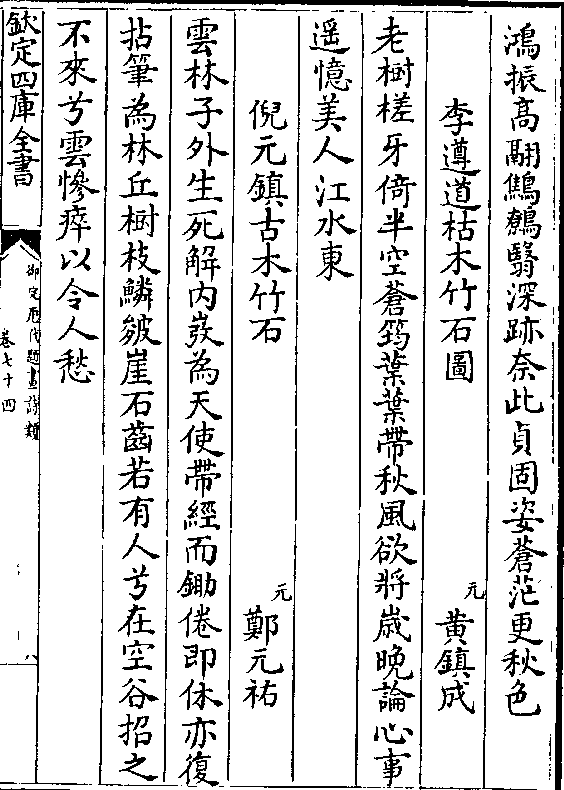 鴻振高翮鷦鷯翳深跡奈此貞固姿蒼茫更秋色
李遵道枯木竹石圖
元
黃鎮成
老樹槎牙倚半空蒼筠葉葉帶秋風欲將歳晚論心事
遥憶美人江水東
倪元鎮古木竹石
元
鄭元祐
雲林子外生死解内为天使帶經而鋤倦即休亦復
拈筆為林丘樹枝鱗皴崖石齒若有人兮在空谷招之
不來兮雲慘瘁以令人愁
欽定四庫全書
御定歷代題畫詩類
卷七十四
八